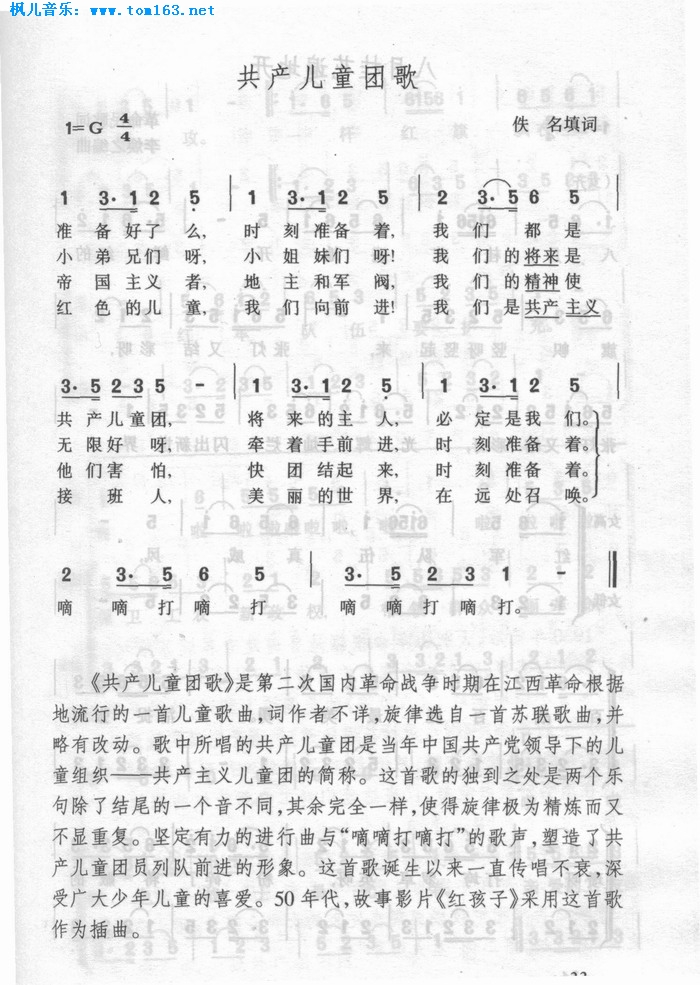 枫儿音乐：www.tom163.net
共产儿童团歌
1=G 4/4 佚 名填词
1 3·1 2 5 | 1 3·1 2 5 | 2 3·5 6 5 |
准 备 好 了 么， 时 刻 准 备 着， 我 们 都 是
小 弟 兄 们 呀， 小 姐 妹 们 呀！ 我 们 的 将来 是
帝 国 主 义 者， 地 主 和 军 阀， 我 们 的 精神 使
红 色 的 儿 童， 我 们 向 前 进！ 我 们 是 共产 主义
3·5 2 3 5 - | 1 3·1 2 5 | 1 3·1 2 5 |
共 产 儿 童 团， 将 来 的 主 人， 必 定 是 我 们。
无 限 好 呀， 牵 着 手 前 进， 时 刻 准 备 着。
他 们 害 怕， 快 团 结 起 来， 时 刻 准 备 着。
接 班 人， 美 丽 的 世 界， 在 远 处 召 唤。
2 3·5 6 5 | 3·5 2 3 1 - ‖
嘀 嘀 打 嘀 打 嘀 嘀 打 嘀 打。
《共产儿童团歌》是第二次国内革命战争时期在江西革命根据
地流行的一首儿童歌曲，词作者不详，旋律选自一首苏联歌曲，并
略有改动。歌中所唱的共产儿童团是当年中国共产党领导下的儿
童组织——共产主义儿童团的简称。这首歌的独到之处是两个乐
句除了结尾的一个音不同，其余完全一样，使得旋律极为精炼而又
不显重复。坚定有力的进行曲与“嘀嘀打嘀打”的歌声，塑造了共
产儿童团员列队前进的形象。这首歌诞生以来一直传唱不衰，深
受广大少年儿童的喜爱。50年代，故事影片《红孩子》采用这首歌
作为插曲。